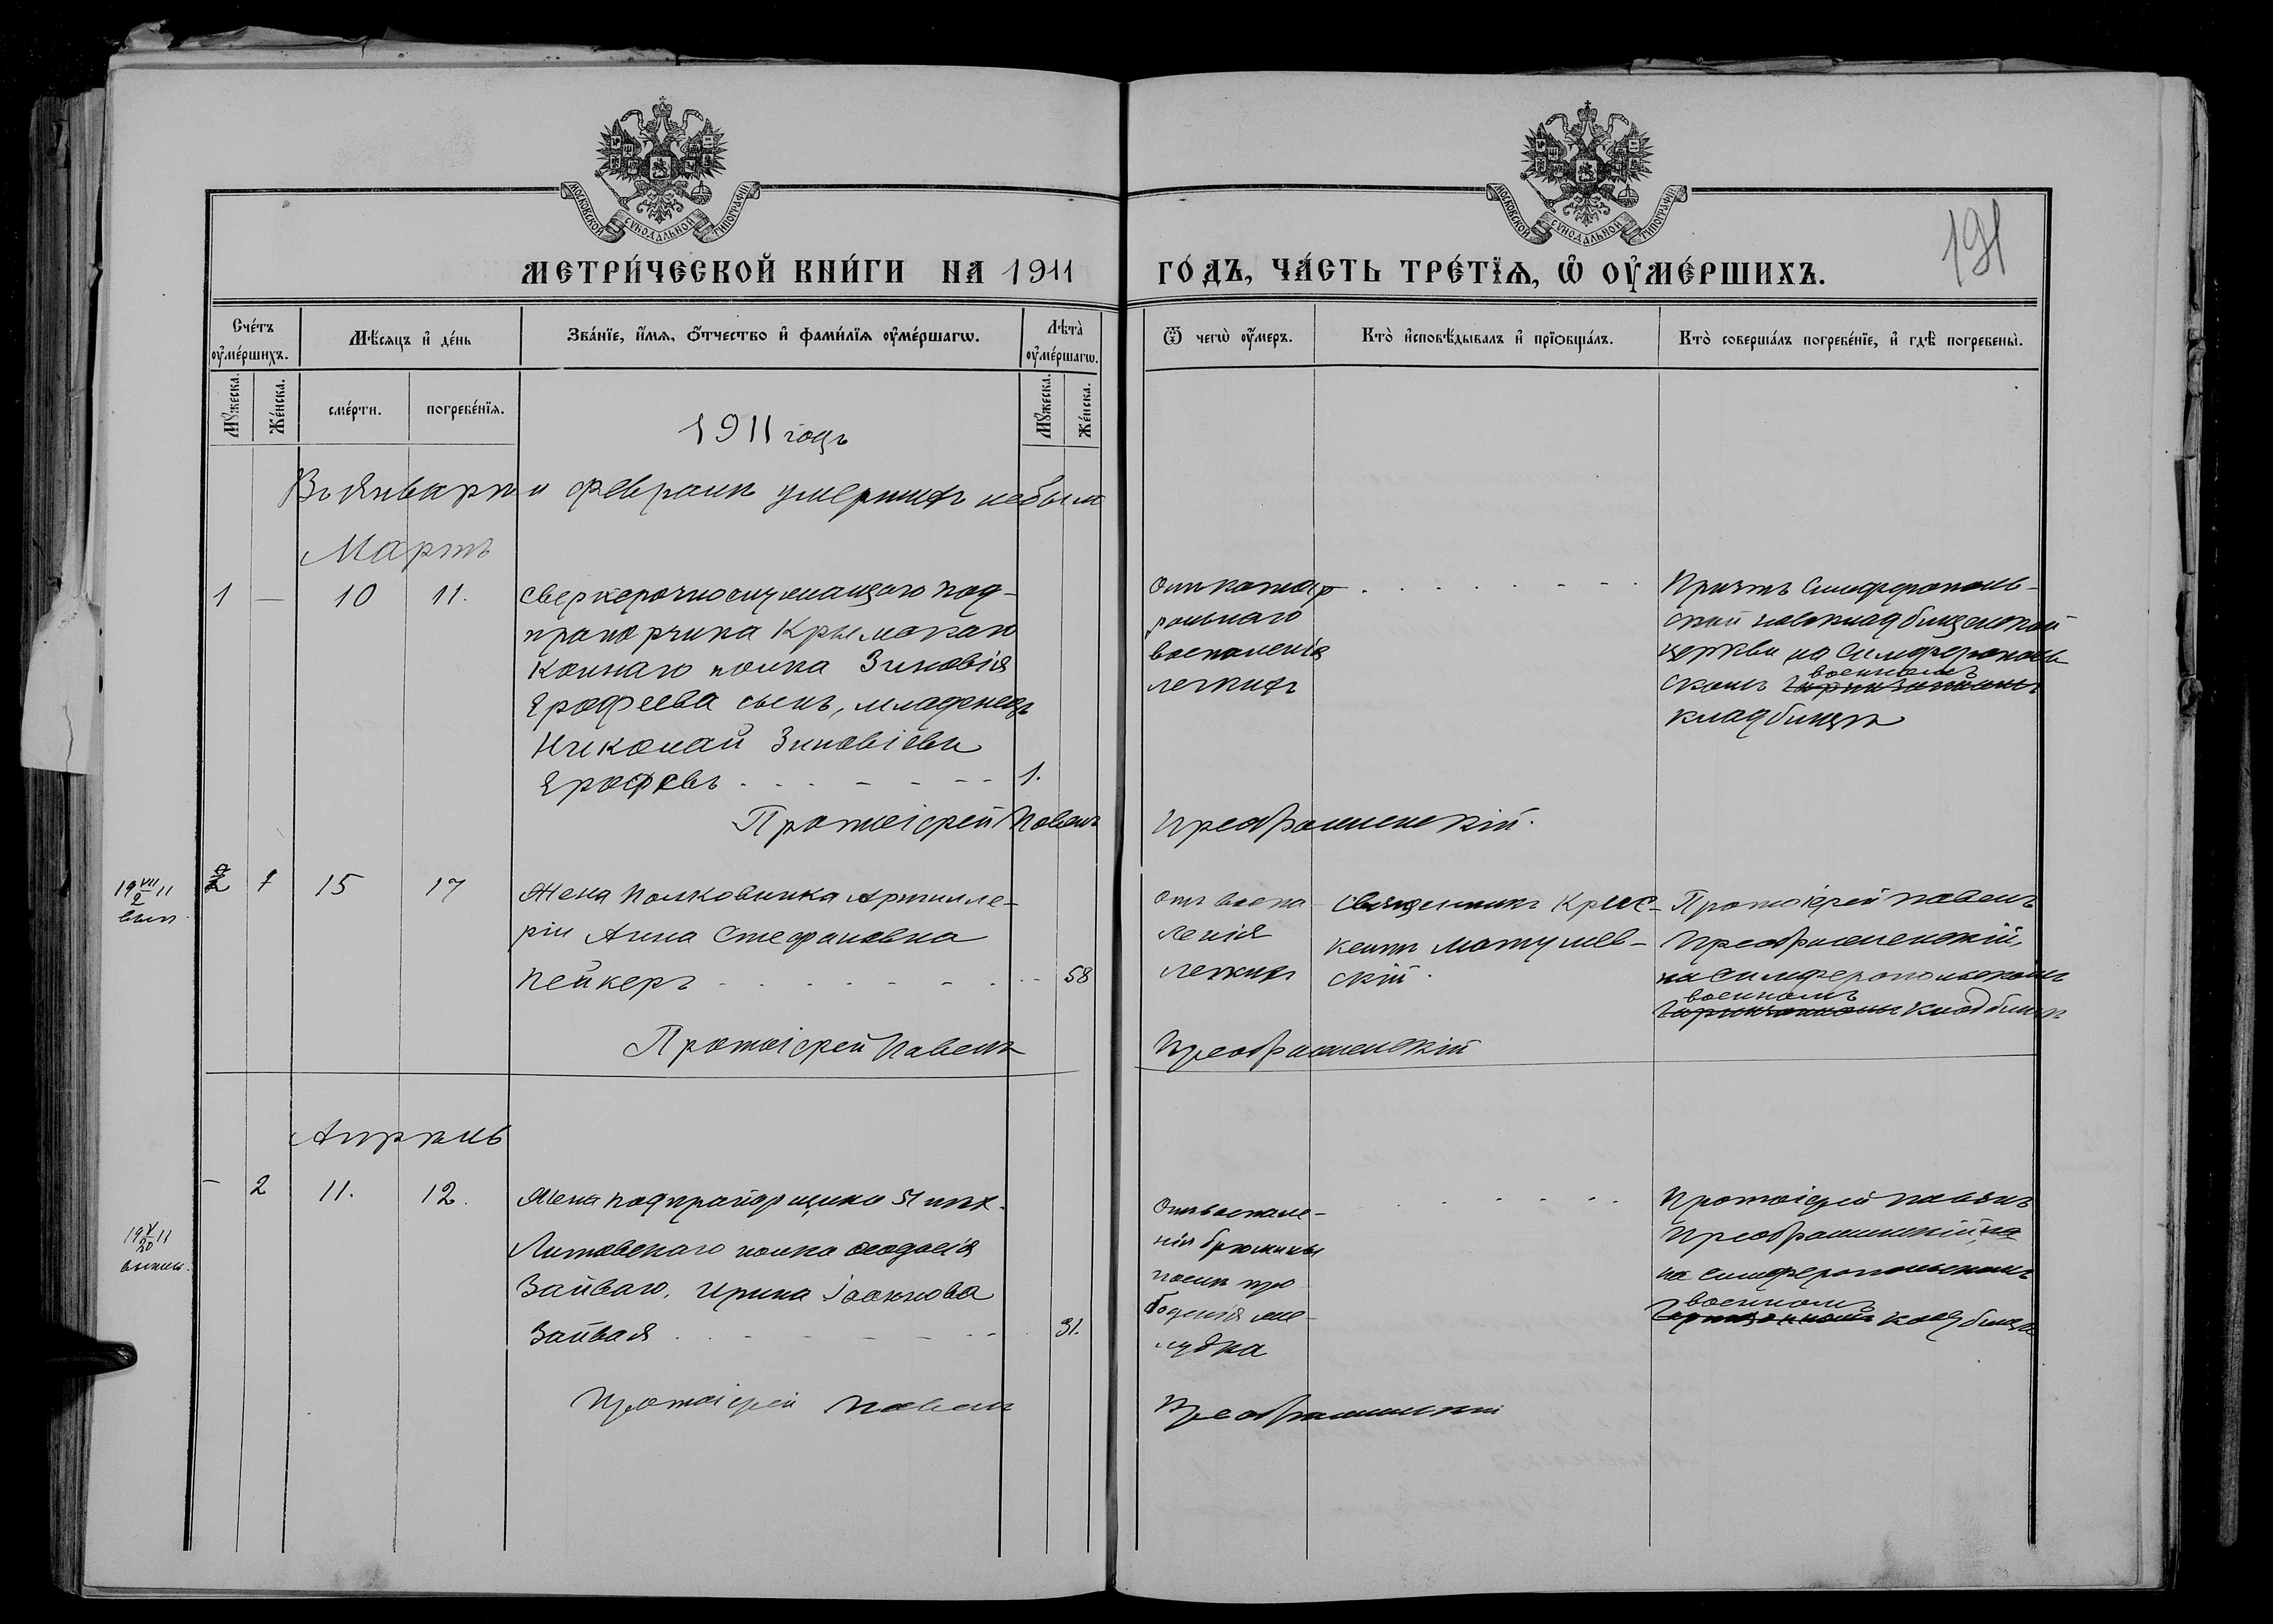 МОСКОВСКОЙ СѴНОДАЛЬНОЙ ТИПОГРАФІИ
МОСКОВСКОЙ СѴНОДАЛЬНОЙ ТИПОГРАФІИ
191
МЕТРИ́ЧЕСКОЙ КНИ́ГИ НА 1911
ГО́ДЪ, ЧА́СТЬ ТРЕ́ТЇѦ, Ѡ҆ ОУ҆МЕ́РШИХЪ.
Сче́тъ оу҆ме́ршихъ.
Мѣ́сяцъ и҆ де́нь
Зва́нїе, и҆́мя, ѻ҆́тчество и҆ фами́лїя оу҆ме́ршагѡ.
Лѣта̀ оу҆ме́ршагѡ.
Ѿ чегѡ̀ оу҆́меръ.
Кто̀ и҆сповѣ́дывалъ и҆ прїѻбща́лъ.
Кто̀ соверша́лъ погребе́нїе, и҆ гдѣ̀ погребены̀.
Мꙋ́жеска.
Же́нска.
сме́рти.
погребе́нїя.
Мꙋ́жеска.
Же́нска.
1911 годъ
Въ Январѣ и Февралѣ умершихъ не было
Мартъ
1 — 10 11.
Сверхсрочнослужащаго под-
прапорщика Крымскаго
Коннаго полка Зиновія
Ерофеева сынъ, младенецъ
Николай Зиновіевъ
Ерофѣевъ 1.
Отъ катар-
ральнаго
воспаленія
легкихъ
Причтъ Симферополь-
ской кладбищенской
церкви на Симферополь-
скомъ военномъ гарнизонномъ
кладбищѣ
Протоіерей Павелъ Преображенскій.
19 VII/2 11
вып.
2 1 15 17
Жена Полковника Артилле-
ріи Анна Стефановна
Пейкеръ 58
Отъ воспа-
ленія
легкихъ
Священникъ
скій.
Протоіерей Павелъ
Преображенскій,
на Симферопольскомъ
военномъ
гарнизонномъ кладбищѣ
Протоіерей Павелъ Преображенскій
Апрѣль
19 V/20 11
выпис.
– 2 11. 12.
Жена подпрапорщика 51 пѣх.
Литовскаго полка Ѳеодосія
Зайваго, Ирина Іоаннова
Зайвая 31.
Отъ воспале-
нія брюшины
послѣ про-
боденія же-
лудка
Протоіерей Павелъ
Преображенскій, на
на Симферопольскомъ
военномъ
гарнизонномъ кладбищѣ
Протоіерей Павелъ Преображенскій